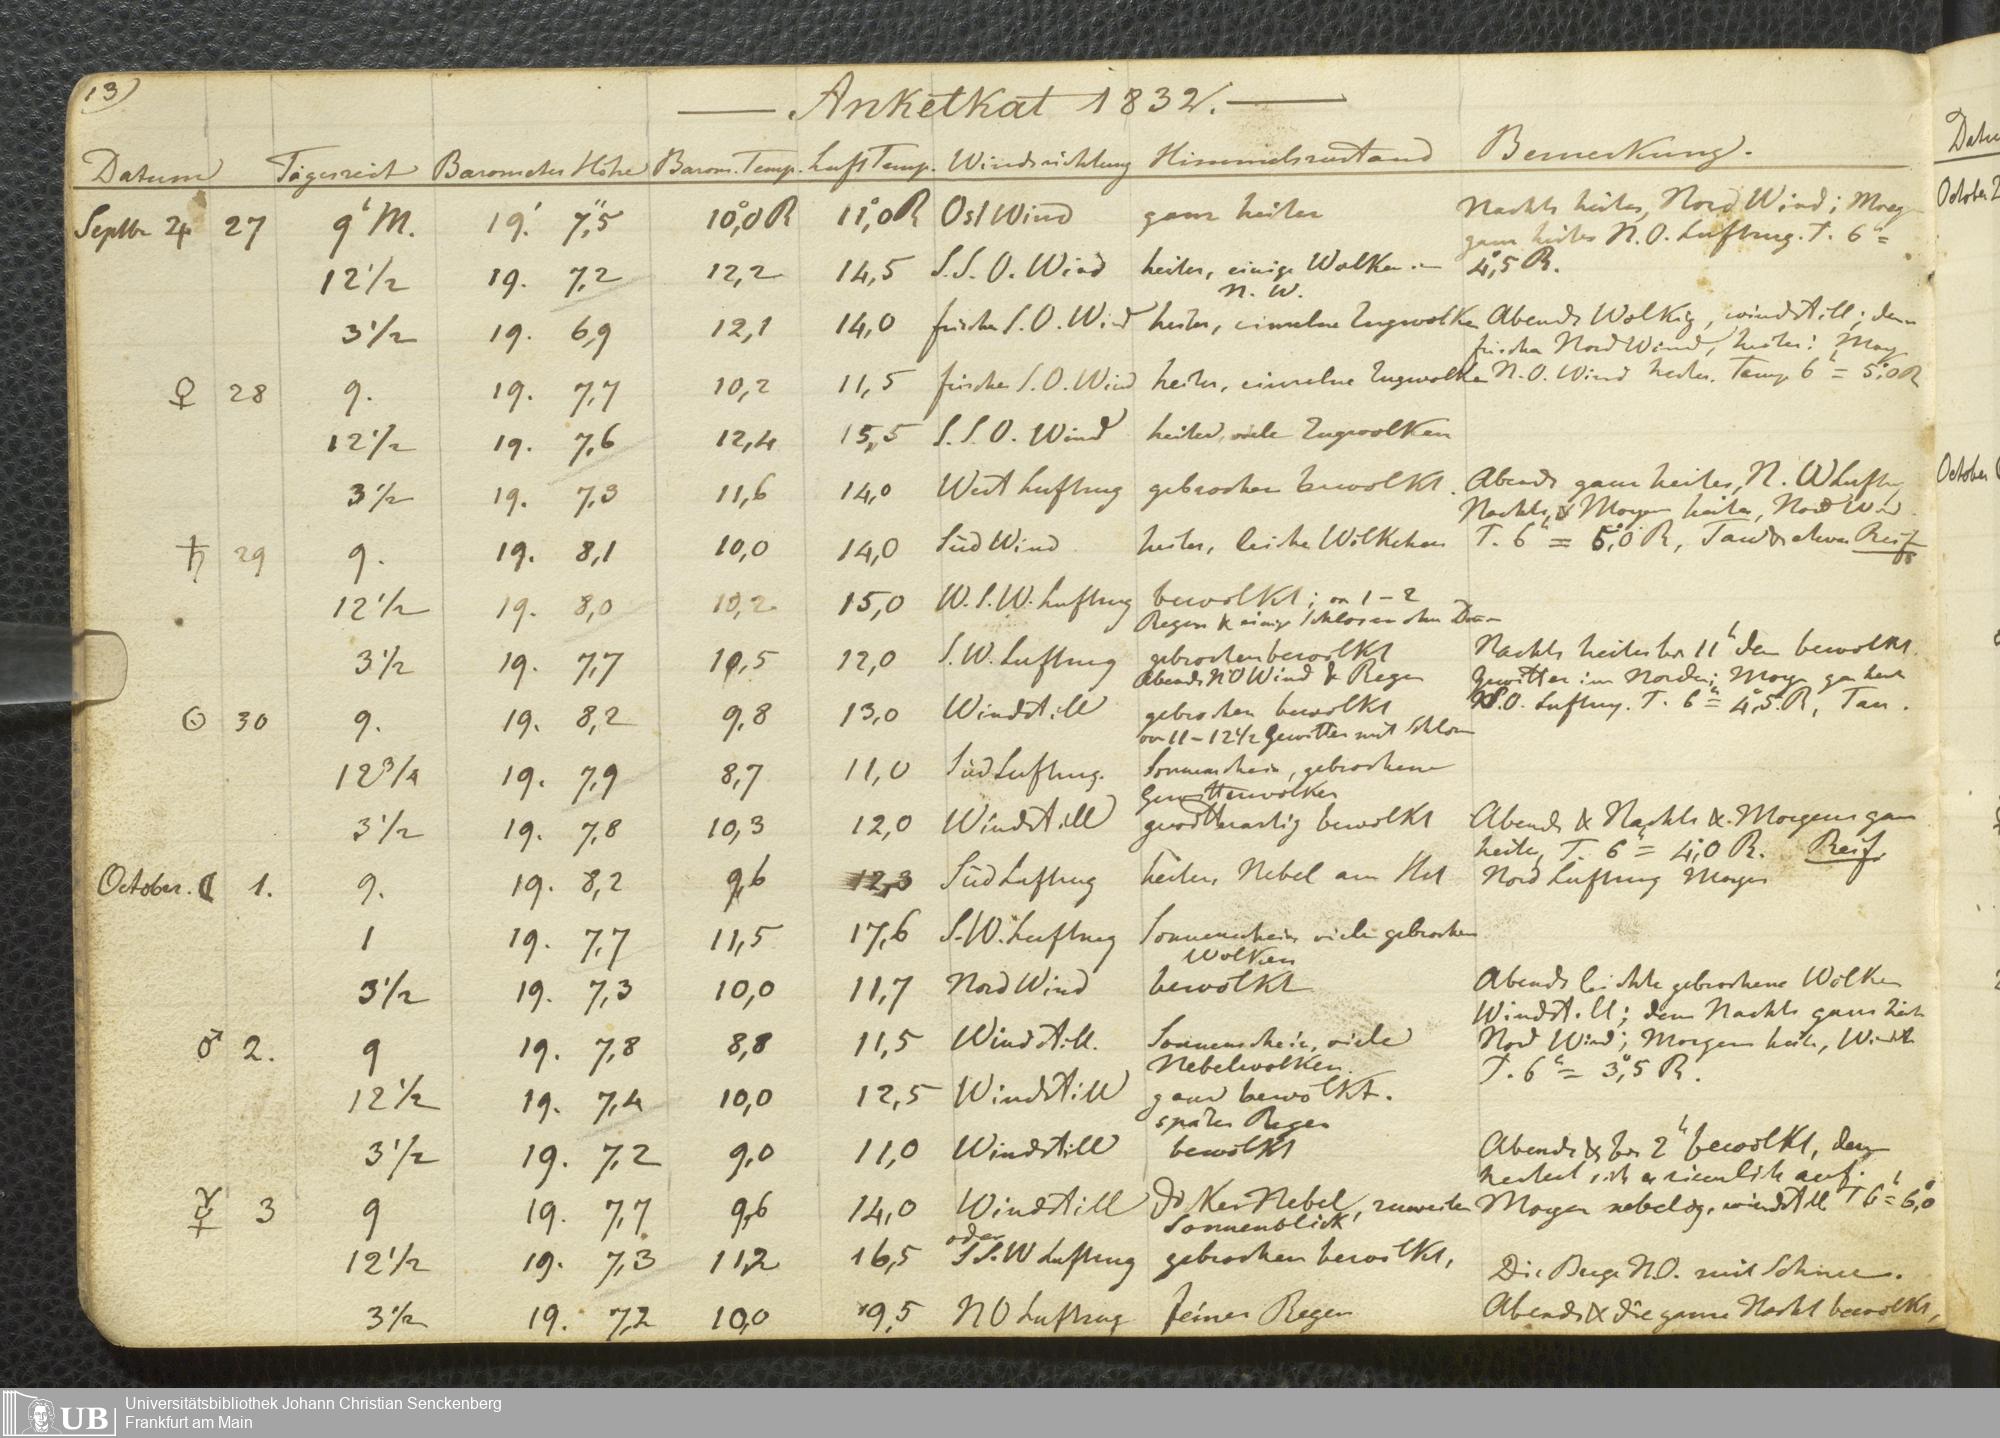 13)
Anketkat 1832.
Datum Tageszeit Barometer Höhe Barom. Temp. Luft Temp. Windrichtung Himmelszustand Bemerkung.
Septbr 24 27 9h M. 19.' 7,"5 10,°0 R 11,°0 R Ost Wind ganz heiter Nachts heiter, Nord Wind; Morg
ganz heiter N.O. Luftzug. T. 6h =
12 1/2 19. 7,2 12,2 14,5 S.S.O. Wind heiter, einige Wolken in 4,°5 R.
N.W.
3 1/2 19. 6,9 12,1 14,0 frischer S.O. Wind heiter, einzelne Zugwolken Abends Wolkig, windstill; dann
frischer Nord Wind, heiter; Morg
♀ 28 9. 19. 7,7 10,2 11,5 frischer S.O. Wind heiter, einzelne Zugwolken N.O. Wind heiter. Temp 6h = 5,°0 R
12 1/2 19. 7,6 12,4 15,5 S.S.O. Wind heiter, viele Zugwolken
3 1/2 19. 7,3 11,6 14,0 West Luftzug gebrochen bewölkt. Abends ganz heiter, N.W Luftzug
Nachts & Morgen heiter, Nord Wind.
♄ 29 9. 19. 8,1 10,0 14,0 Süd Wind heiter, leichte Wölkchen T. 6h = 5,°0 R, Tau & etwas Reif
12 1/2 19. 8,0 10,2 15,0 W.S.W. Luftzug bewölkt; von 1-2
Regen & einige Schlosen ohne
3 1/2 19. 7,7 10,5 12,0 S.W. Luftzug gebrochen bewölkt Nachts heiter bis 11h dann bewölkt.
Abends NO Wind & Regen Gewitter im Norden; Morgen ganz heiter
☉ 30 9. 19. 8,2 9,8 13,0 Windstill gebrochen bewölkt N.O. Luftzug. T. 6h = 4,°5 R, Tau.
von 11-12 1/2 Gewitter mit Schlosen
12 3/4 19. 7,9 8,7 11,0 Süd Luftzug. Sonnenschein, gebrochene
Gewitterwolken
3 1/2 19. 7,8 10,3 12,0 Windstill gewitterartig bewölkt Abends & Nachts & Morgens ganz
heiter, T. 6h = 4,°0 R. Reif
October. ☾ 1. 9. 19. 8,2 9,6 12,3 Süd Luftzug heiter, Nebel am Nord Luftzug Morgen
1 19. 7,7 11,5 17,6 S.W. Luftzug Sonnenschein viele gebrochene
Wolken
3 1/2 19. 7,3 10,0 11,7 Nord Wind bewölkt Abends leichte gebrochene Wolken
Windstill; dann Nachts ganz heiter
♂ 2. 9 19. 7,8 8,8 11,5 Windstill. Sonnenschein, viele Nord Wind; Morgen heiter,
Nebelwolken. T. 6h = 3,°5 R.
12 1/2 19. 7,4 10,0 12,5 Windstill ganz bewölkt.
später Regen
3 1/2 19. 7,2 9,0 11,0 Windstill bewölkt Abends & bis 2h bewölkt, dann
heitert sich es ziemlich auf.
☿ 3 9 19. 7,7 9,6 14,0 Windstill Dicker Nebel, zuweilen Morgen nebelig, windstill T 6h = 6,°0
Sonnenblick
oder
12 1/2 19. 7,3 11,2 16,5 S.S.W Luftzug gebrochen bewölkt, Die Berge N.O. mit Schnee.
3 1/2 19. 7,2 10,0 9,5 NO Luftzug feiner Regen Abends & die ganze Nacht bewölkt,
Datu
October 2
October
UB
Universitätsbibliothek Johann Christian Senckenberg
Frankfurt am Main